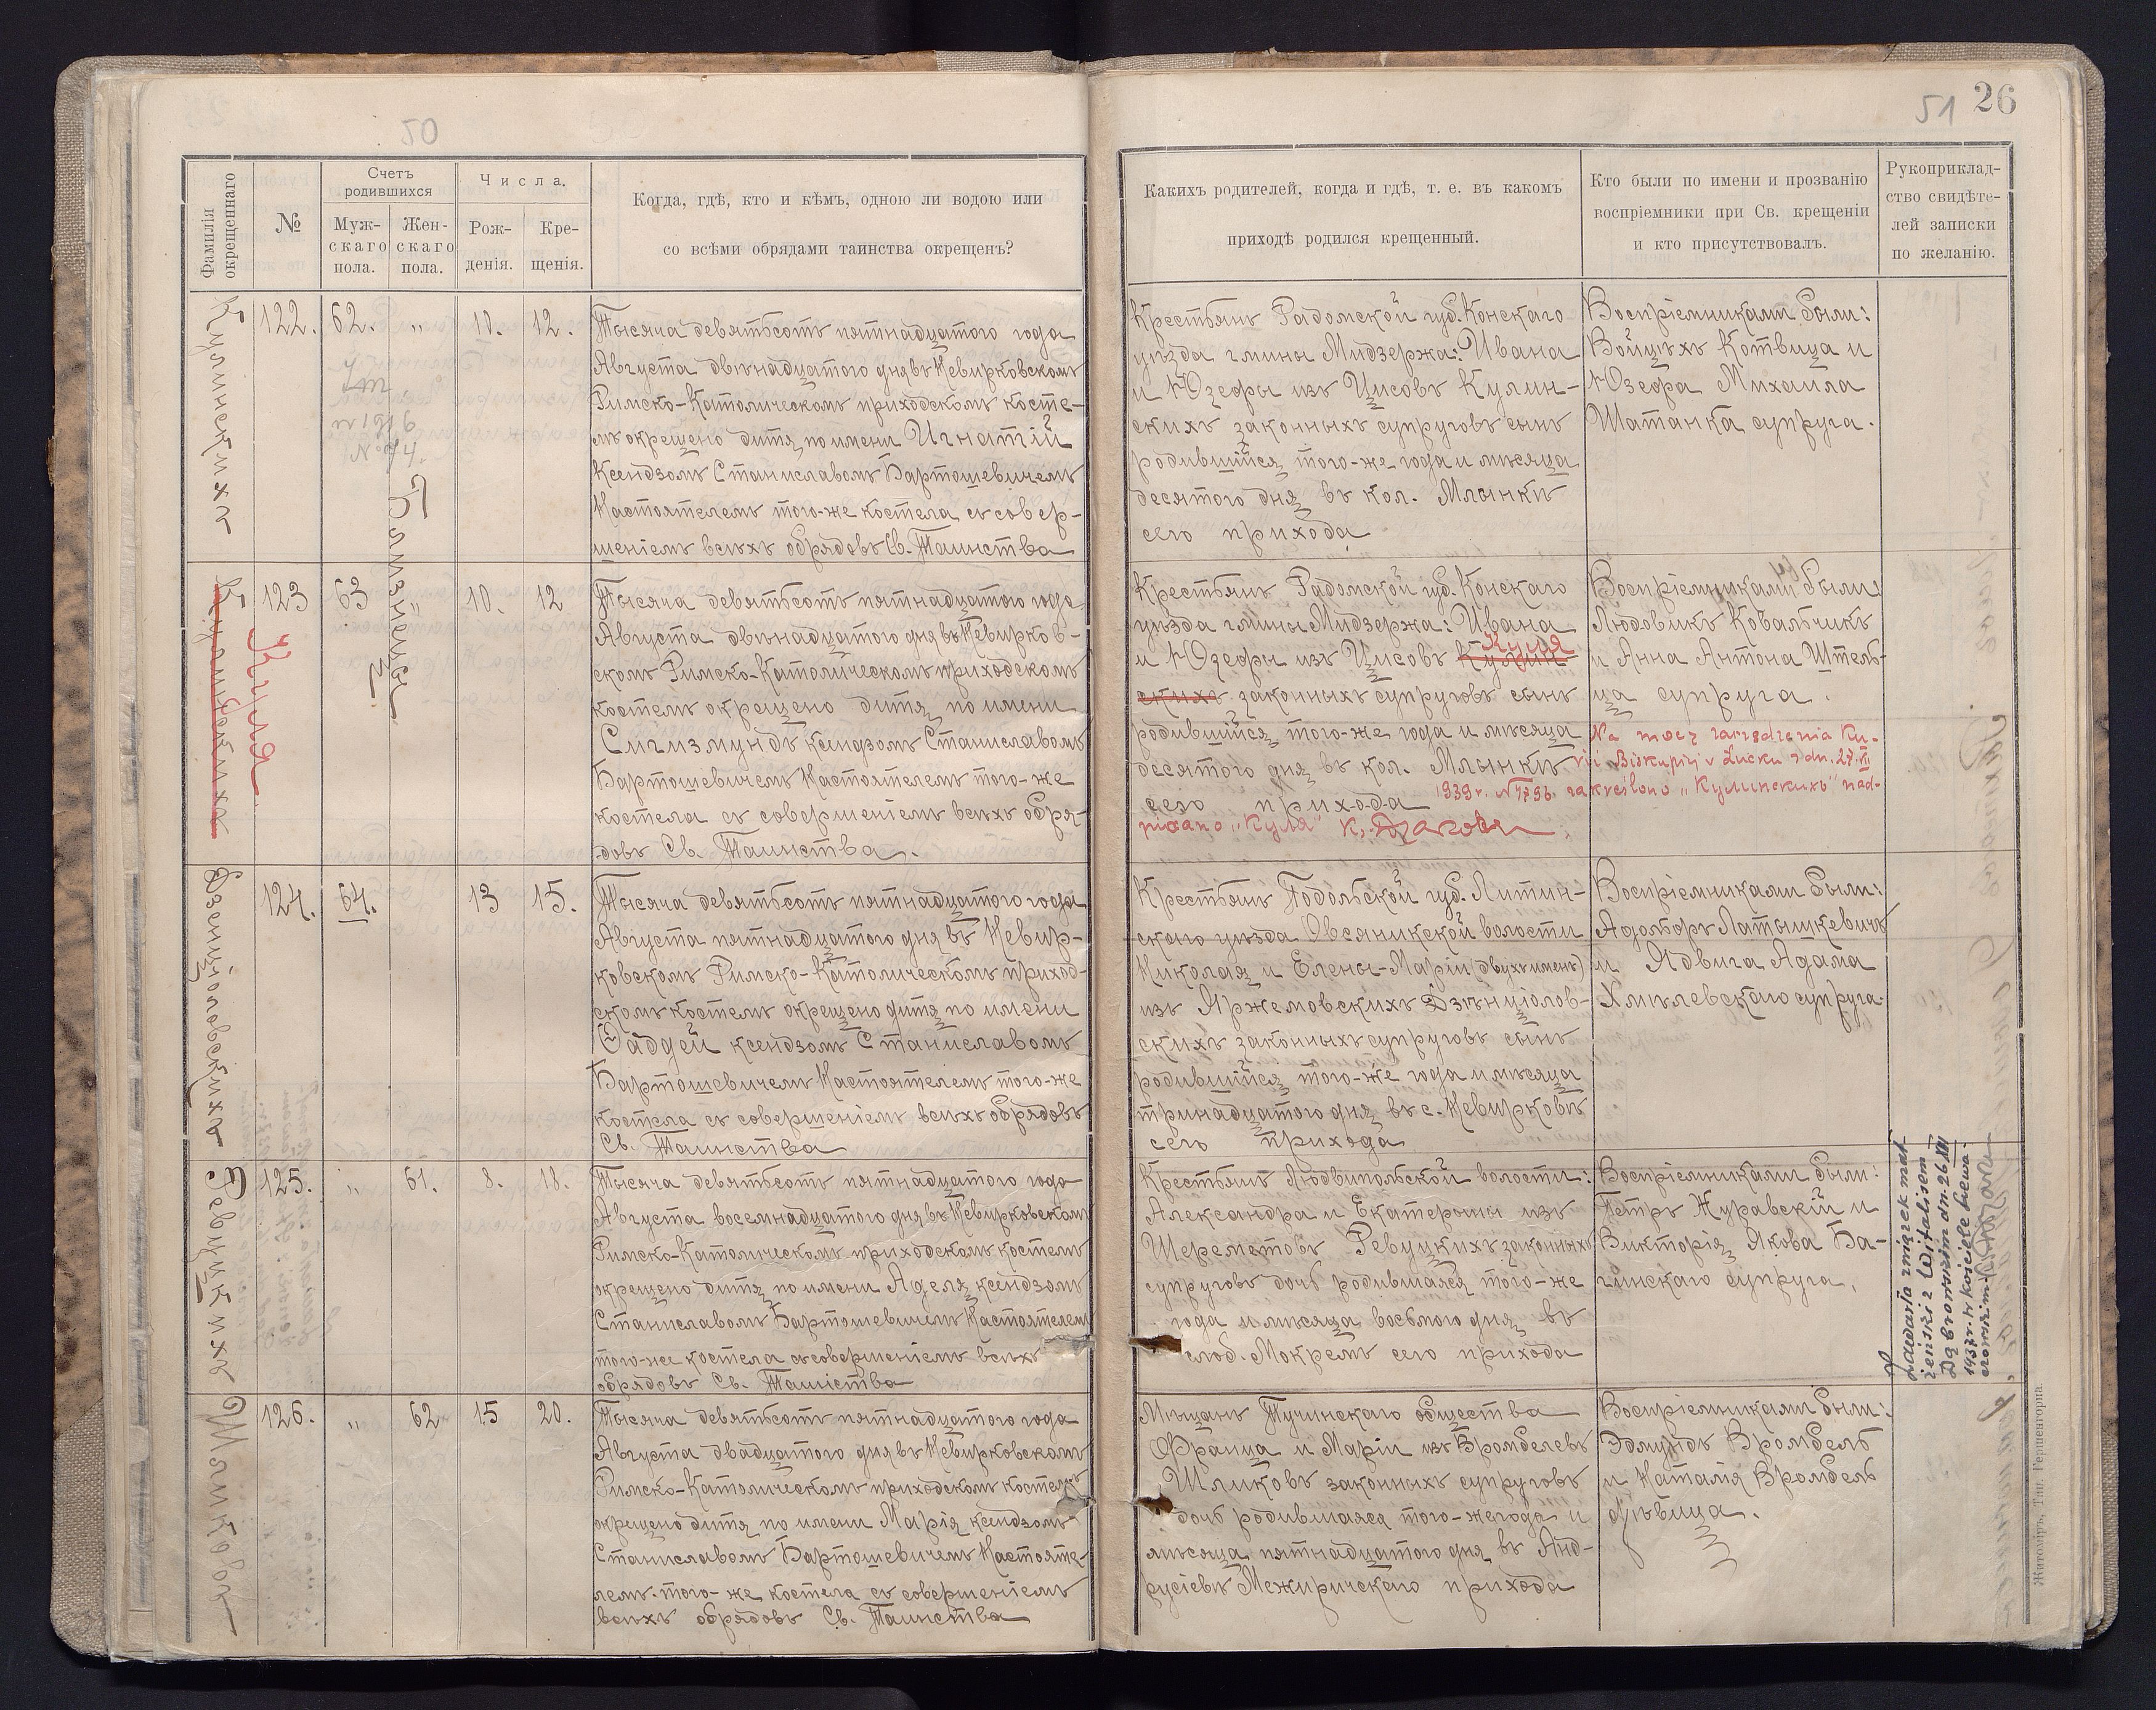 50
51 26
Фамилія окрещеннаго
№
Счетъ родившихся
Муж-
скаго
пола.
Жен-
скаго
пола.
Числа.
Рож-
денія.
Кре-
щенія.
Когда, гдѣ, кто и кѣмъ, одною ли водою или
со всѣми обрядами таинства окрещенъ?
Какихъ родителей, когда и гдѣ, т. е. въ какомъ
приходѣ родился крещенный.
Кто были по имени и прозванію
воспріемники при Св. крещеніи
и кто присутствовалъ.
Рукоприклад-
ство свидѣте-
лей записки
по желанію.
Кулинскихъ
122. 62. " 10. 12.
N° 74.
Близнецы
Тысяча девятьсотъ пятнадцатого года
Августа двѣнадцатого дня въ Невирковскомъ
Римско-Католическомъ приходскомъ косте-
лѣ окрещено дитя по имени Игнатій
Ксендзомъ Станиславомъ Бартошевичемъ
Настоятелемъ того-же костела съ совер-
шеніемъ всѣхъ обрядовъ Св. Таинства
Крестьянъ Радомской губ. Конскаго
уѣзда гмины Мидзержа: Ивана
и Юзефы изъ Цисовъ Кулин-
скихъ законныхъ супруговъ сынъ
родившійся того-же года и мѣсяца
десятого дня въ кол. Млынкѣ
сего прихода
Воспріемниками были:
Войцѣхъ Котвица и
Юзефа Михаила
Шатанка супруга.
Кулинскихъ
Куля
123 63 " 10. 12
Тысяча девятьсотъ пятнадцатого года
Августа двѣнадцатого дня въ Невирков-
скомъ Римско-Католическомъ приходскомъ
костелѣ окрещено дитя по имени
Сигизмундъ ксендзомъ Станиславомъ
Бартошевичемъ Настоятелемъ того-же
костела съ совершеніемъ всѣхъ обря-
довъ Св. Таинства.
Крестьянъ Радомской губ. Конскаго
уѣзда гмины Мидзержа: Ивана
Куля
и Юзефы изъ Цисовъ Кулин-
скихъ законныхъ супруговъ сынъ
родившійся того-же года и мѣсяца
десятого дня въ кол. Млынкѣ
сего прихода
Воспріемниками были:
Людовикъ Ковальчикъ
и Анна Антона Штель-
ца супруга.
Na mocy zarządzenia Ku-
rji Biskupiej w Łucku z dn. 27.VII
1939 r. N 4796. zakreślono "Кулинскихъ" nad-
pisano "Куля"
Дзенціоловскихъ
124. 64. 13 15.
Тысяча девятьсотъ пятнадцатого года
Августа пятнадцатого дня въ Невир-
ковскомъ Римско-Католическомъ приход-
скомъ костелѣ окрещено дитя по имени
Фаддей ксендзомъ Станиславомъ
Бартошевичемъ Настоятелемъ того-же
костела съ совершеніемъ всѣхъ обрядовъ
Св. Таинства
Крестьянъ Подольской губ. Литин-
скаго уѣзда Овсяникской волости
Николая и Елены-Маріи (двухъ именъ)
изъ Яржемовскихъ Дзѣнціолов-
скихъ законныхъ супруговъ сынъ
родившійся того-же года и мѣсяца
тринадцатого дня въ с. Невирковѣ
сего прихода
Воспріемниками были:
Адольфъ Латышкевичъ
и Ядвига Адама
Хмѣлевскаго супруга.
Ревуцкихъ
125. " 61. 8. 18.
Тысяча девятьсотъ пятнадцатого года
Августа восемнадцатого дня въ Невирковскомъ
Римско-Католическомъ приходскомъ костелѣ
окрещено дитя по имени Аделя ксендзомъ
Станиславомъ Бартошевичемъ Настоятелемъ
того-же костела съ совершеніемъ всѣхъ
обрядовъ Св. Таинства
Крестьянъ Людвипольской волости:
Александра и Екатерины изъ
Шереметовъ Ревуцкихъ законныхъ
супруговъ дочь родившаяся того-же
года и мѣсяца восьмого дня въ
слоб. Мокремъ сего прихода
Воспріемниками были:
Петръ Журавскій и
Викторія Якова Ба-
гинскаго супруга.
Zawarła związek mał-
żeński z Witalisem
Dąbrowskim dn. 26 XII
1937 r. w kościele
Шликовъ
126. " 62 15 20.
Тысяча девятьсотъ пятнадцатого года
Августа двадцатого дня въ Невирковскомъ
Римско-Католическомъ приходскомъ костелѣ
окрещено дитя по имени Марія ксендзомъ
Станиславомъ Бартошевичемъ Настояте-
лемъ того-же костела съ совершеніемъ
всѣхъ обрядовъ Св. Таинства
Мѣщанъ Тучинскаго общества
Франца и Маріи изъ Вромбелевъ
Шликовъ законныхъ супруговъ
дочь родившаяся того-же года и
мѣсяца пятнадцатого дня въ Анд-
русіевѣ Межиричскаго прихода
Воспріемниками были:
Эдмундъ Вромбель
и Наталія Вромбель
дѣвица.
Житоміръ, Тип. Гершенгорна